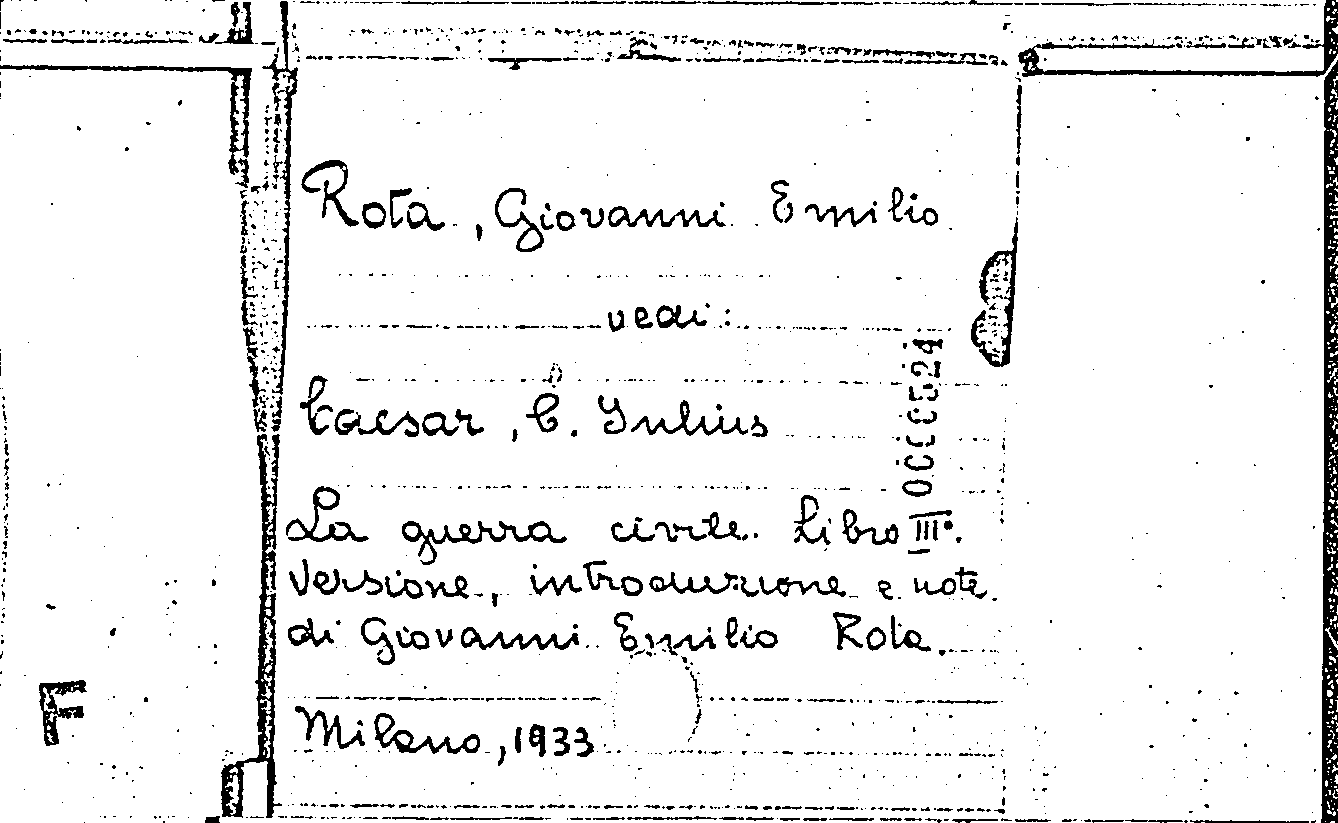 Rota, Giovanni Emilio
vedi:
Caesar, C. Iulius
0000524
La guerra civile. Libro III°.
Versione, introduzione e note
di Giovanni Emilio Rota.
Milano, 1933
F